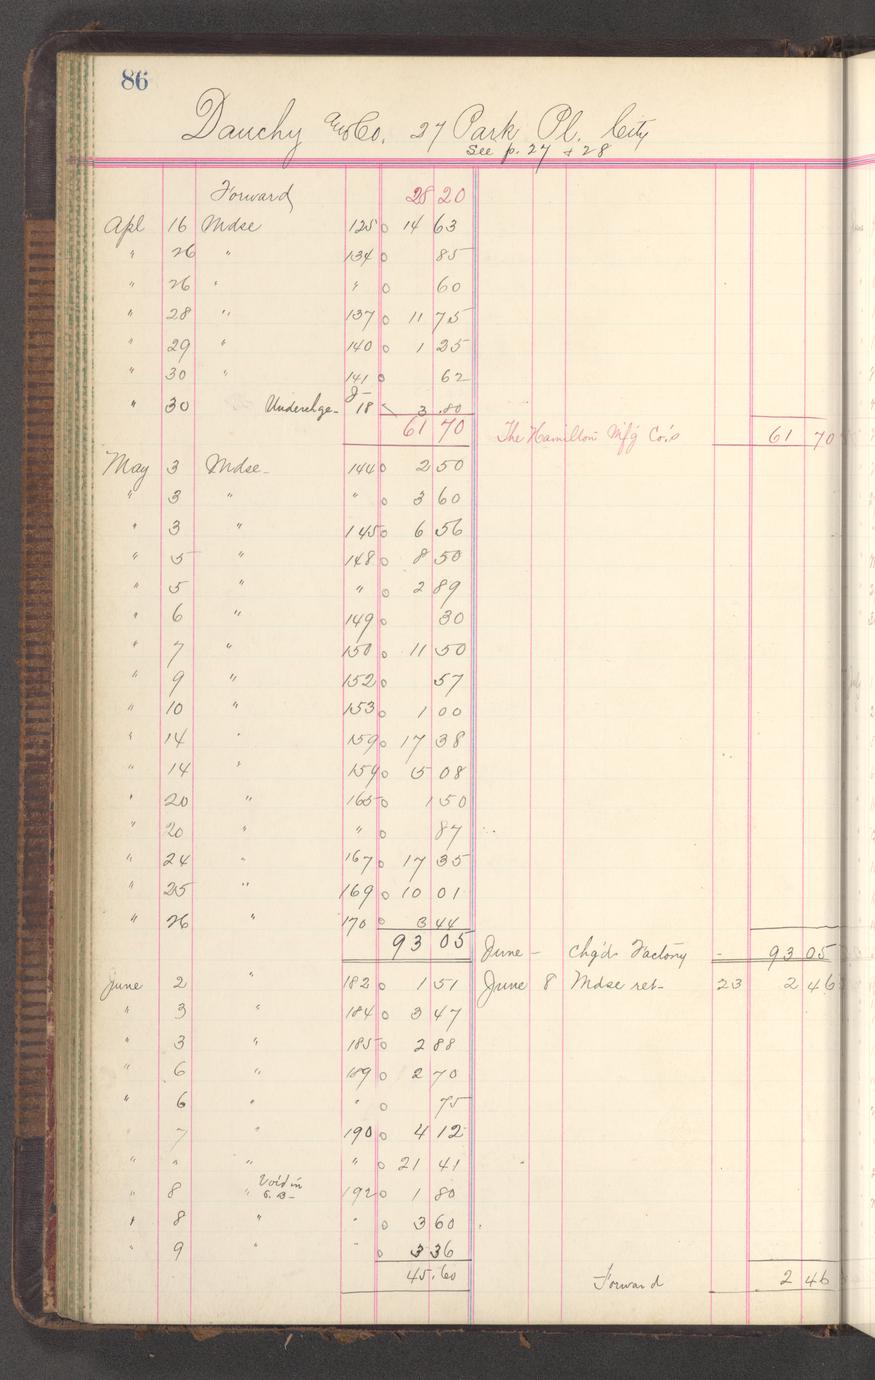 86
Dauchy and Co. 27 Park Pl. City
See p. 27 + 28
Forward 28 20
Apl 16 Mdse 125 o 14 63
" 26 " 134 o 85
" 26 " " o 60
" 28 " 137 o 11 75
" 29 " 140 o 1 25
" 30 " 141 o 62
" 30 Underchge- J- 18 3.80
61 70 The Hamilton Mfg Co.'s 61 70
May 3 Mdse- 144 o 2 50
" 3 " " o 3 60
" 3 " 145 o 6 56
" 5 " 148 o 8 50
" 5 " " o 2 89
" 6 " 149 o 30
" 7 " 150 o 11 50
" 9 " 152 o 57
" 10 " 153 o 1 00
" 14 " 159 o 17 38
" 14 " 159 o 5 08
" 20 " 165 o 1 50
" 20 " " o 87
" 24 " 167 o 17 35
" 25 " 169 o 10 01
" 26 " 170 o 3 44
93 05 June - Chg'd Factory - 93 05
June 2 " 182 o 1 51 June 8 Mdse ret- 23 2 46
" 3 " 184 o 3 47
" 3 " 185 o 2 88
" 6 " 189 o 2 70
" 6 " " o 75
" 7 " 190 o 4 12
" " " " o 21 41
" 8 " Void in S. B- 192 o 1 80
" 8 " " o 3 60
" 9 " " o 3 36
45.60 Forward 2 46